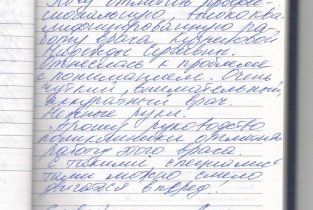 Хочу отметить профес-
сиональную, высококва-
лифицированную ра-
боту врача
Сергеевны.
Отнеслась к проблеме
с пониманием. Очень
чуткий, внимательный,
аккуратный врач.
Нежные руки.
Прошу руководство
поликлиники отметить
работу этого врача
С такими специалис-
тами можно смело
двигаться вперед!